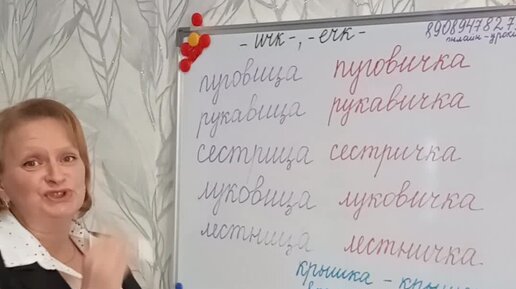 - ичк -, - ечк -
онлайн-уроки
пуговица пуговичка
рукавица рукавичка
сестрица сестричка
луковица луковичка
лестница лестничка
крышка -